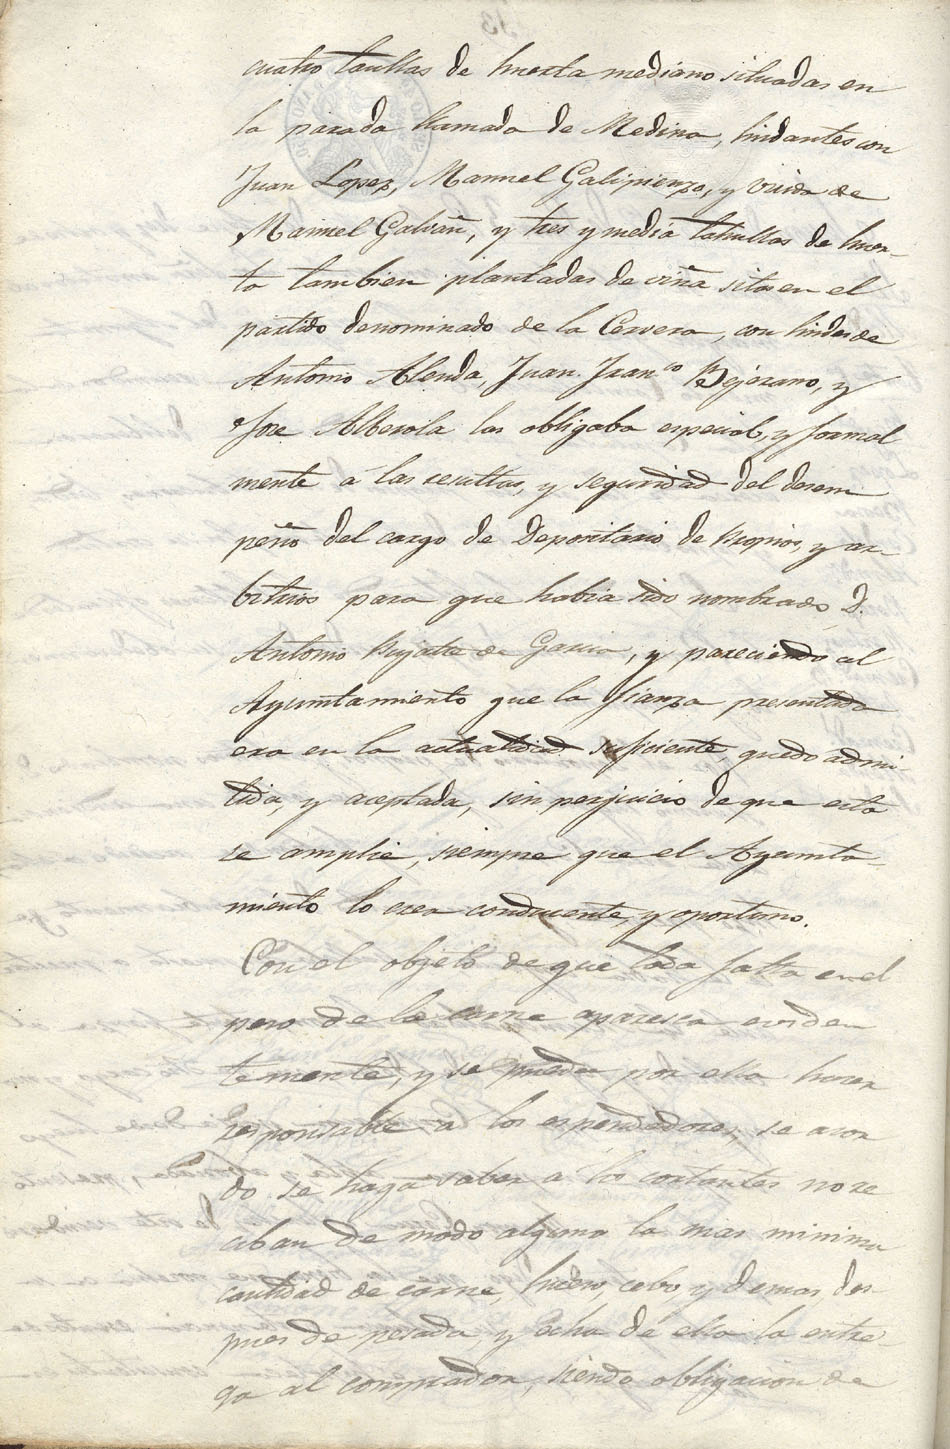 cuatro taullas de huerta mediano situadas en
la parada llamada de Medina, lindantes con
Juan Lopez, Manuel Galipienzo, y viuda de
Manuel Galvañ, y tres y media tahullas de huer-
ta tambien plantadas de viña sitas en el
partido denominado de la Cervera, con lindes de
Antonio Alenda, Juan Fran.co Bejarano, y
Jose Alberola las obligaba especial, y formal
mente á las resultas, y seguridad del desem
peño del cargo de Depositario de Propios, y ar-
bitrios para que habia sido nombrado D.
Antonio de Garcia, y pareciendo al
Ayuntamiento que la fianza presentada
era en la actualidad suficiente, quedó admi-
tida, y aceptada, sin perjuicio de que esta
se amplie, siempre que el Ayunta-
miento lo crea conducente, y oportuno.
Con el objeto de que toda falta en el
peso de la carne aparesca eviden
temente, y se pueda por ella hacer
responsable á los espendedores, se acor
do se haga saber a los cortantes no re
ciban de modo alguno la mas minima
cantidad de carne, hueso, cebo, y demas, des-
pues de pesada, y echa de ella la entre-
ga al comprador, siendo obligacion de